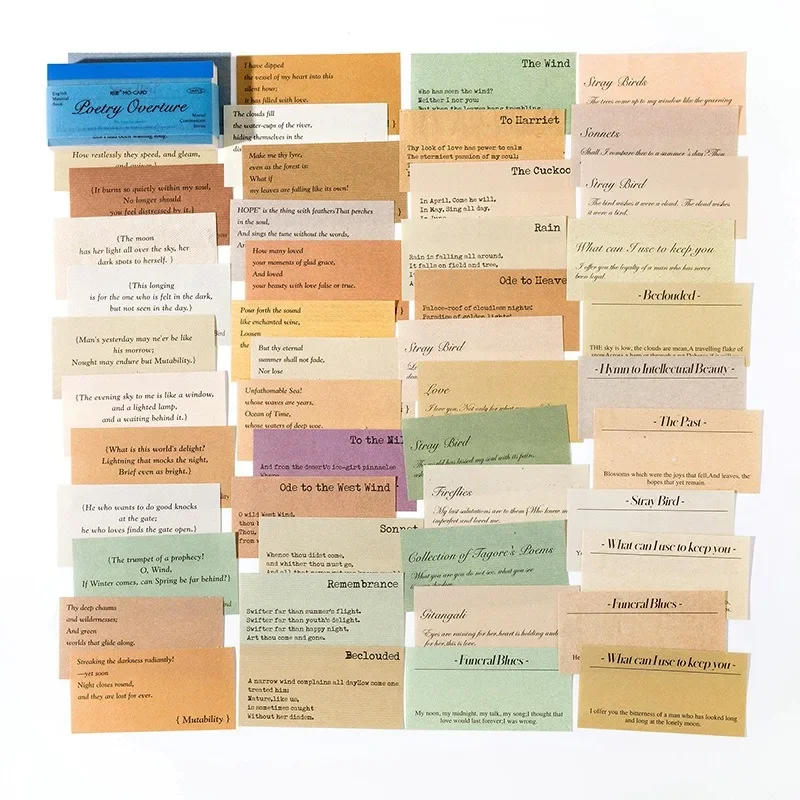 MO·CARD
English
Material
Book
Poetry Overture
Material
Book
How restlessly they speed, and gleam,
{It burns so quietly within my soul,
No longer should
you feel distressed by it.}
{The moon
has her light all over the sky, her
dark spots to herself. }
{This longing
is for the one who is felt in the dark,
but not seen in the day.}
{Man's yesterday may ne'er be like
his morrow;
Nought may endure but Mutability.}
{The evening sky to me is like a window,
and a lighted lamp,
and a waiting behind it.}
{What is this world's delight?
Lightning that mocks the night,
Brief even as bright.}
{He who wants to do good knocks
at the gate;
he who loves finds the gate open.}
{The trumpet of a prophecy!
O, Wind,
If Winter comes, can Spring be far behind?}
Thy deep chasms
and wildernesses;
And green
worlds that glide along.
Streaking the darkness radiantly!
—yet soon
Night closes round,
and they are lost for ever.
{ Mutability }
I have dipped
the vessel of my heart into this
silent hour;
It has filled with love.
The clouds fill
the water-cups of the river,
hiding themselves in the
Make me thy lyre,
even as the forest is:
What if
my leaves are falling like its own!
HOPE" is the thing with feathersThat perches
in the soul,
And sings the tune without the words,
How many loved
your moments of glad grace,
And loved
your beauty with love false or true.
Pour forth the sound
like enchanted wine,
Loosen
But thy eternal
summer shall not fade,
Nor lose
Unfathomable Sea!
whose waves are years,
Ocean of Time,
whose waters of deep woe.
To the Nil
And from the desert's ice-girt pinnacles
Where
Ode to the West Wind
O wild West Wind,
thou
Thou,
from
Sonnet
Whence thou didst come,
and whither thou must go,
And all that never yet
Remembrance
Swifter far than summer's flight.
Swifter far than youth's delight.
Swifter far than happy night,
Art thou come and gone.
Beclouded
A narrow wind complains all dayHow some one
treated him;
Nature,like us,
is sometimes caught
Without her diadem.
The Wind
Who has seen the wind?
Neither I nor you:
But when the leaves hang trembling
To Harriet
Thy look of love has power to calm
The stormiest passion of my soul;
The Cuckoo
In April, Come he will,
In May, Sing all day,
In June
Rain
Rain is falling all around,
It falls on field and tree,
Ode to Heave
Palace-roof of cloudless nights!
Paradise of golden lights!
Stray Bird
Love
I love you, Not only for what
Stray Bird
The world has kissed my soul with its pain,
Fireflies
My last salutations are to them {Who knew m
imperfect and loved me.
Collection of Tagore's Poems
What you are you do not see, what you see
Gitangali
Eyes are raining for her,heart is holding
for her,this is love.
-Funeral Blues -
My noon, my midnight, my talk, my song;I thought that
love would last forever;I was wrong.
Stray Birds
The trees come up to my window like the yearning
Sonnets
Shall I compare thee to a summer's day?Thou
Stray Bird
The bird wishes it were a cloud. The cloud wishes
it were a bird.
What can I use to keep you
I offer you the loyalty of a man who has never
been loyal.
- Beclouded -
THE sky is low, the clouds are mean,A travelling flake of
- Hymn to Intellectual Beauty -
- The Past -
Blossoms which were the joys that fell,And leaves, the
hopes that yet remain.
- Stray Bird -
- What can I use to keep you -
- Funeral Blues -
- What can I use to keep you -
I offer you the bitterness of a man who has looked long
and long at the lonely moon.